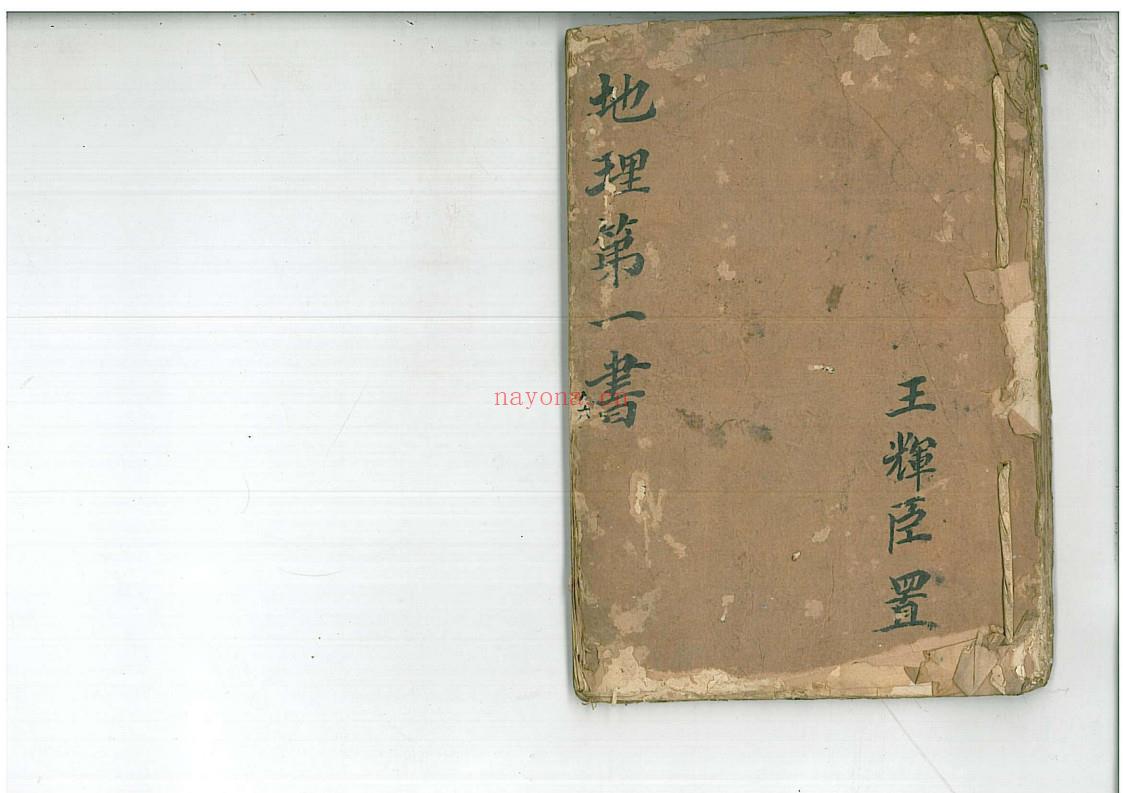 地理第一書
王輝臣置
nayona.cn